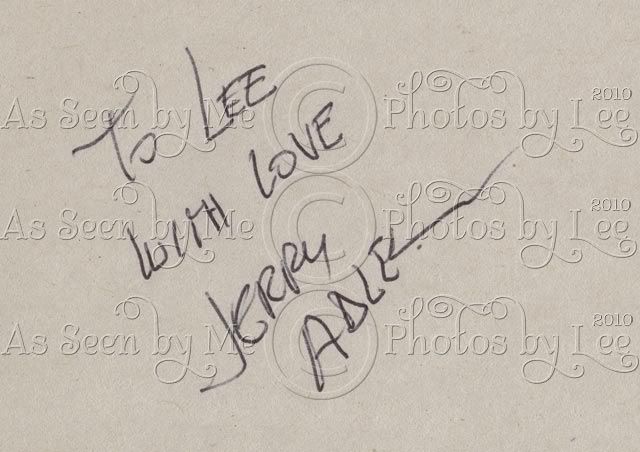 To LEE
WITH LOVE
JERRY
ADLER
As Seen by Me © Photos by Lee 2010
As Seen by Me © Photos by Lee 2010
As Seen by Me © Photos by Lee 2010